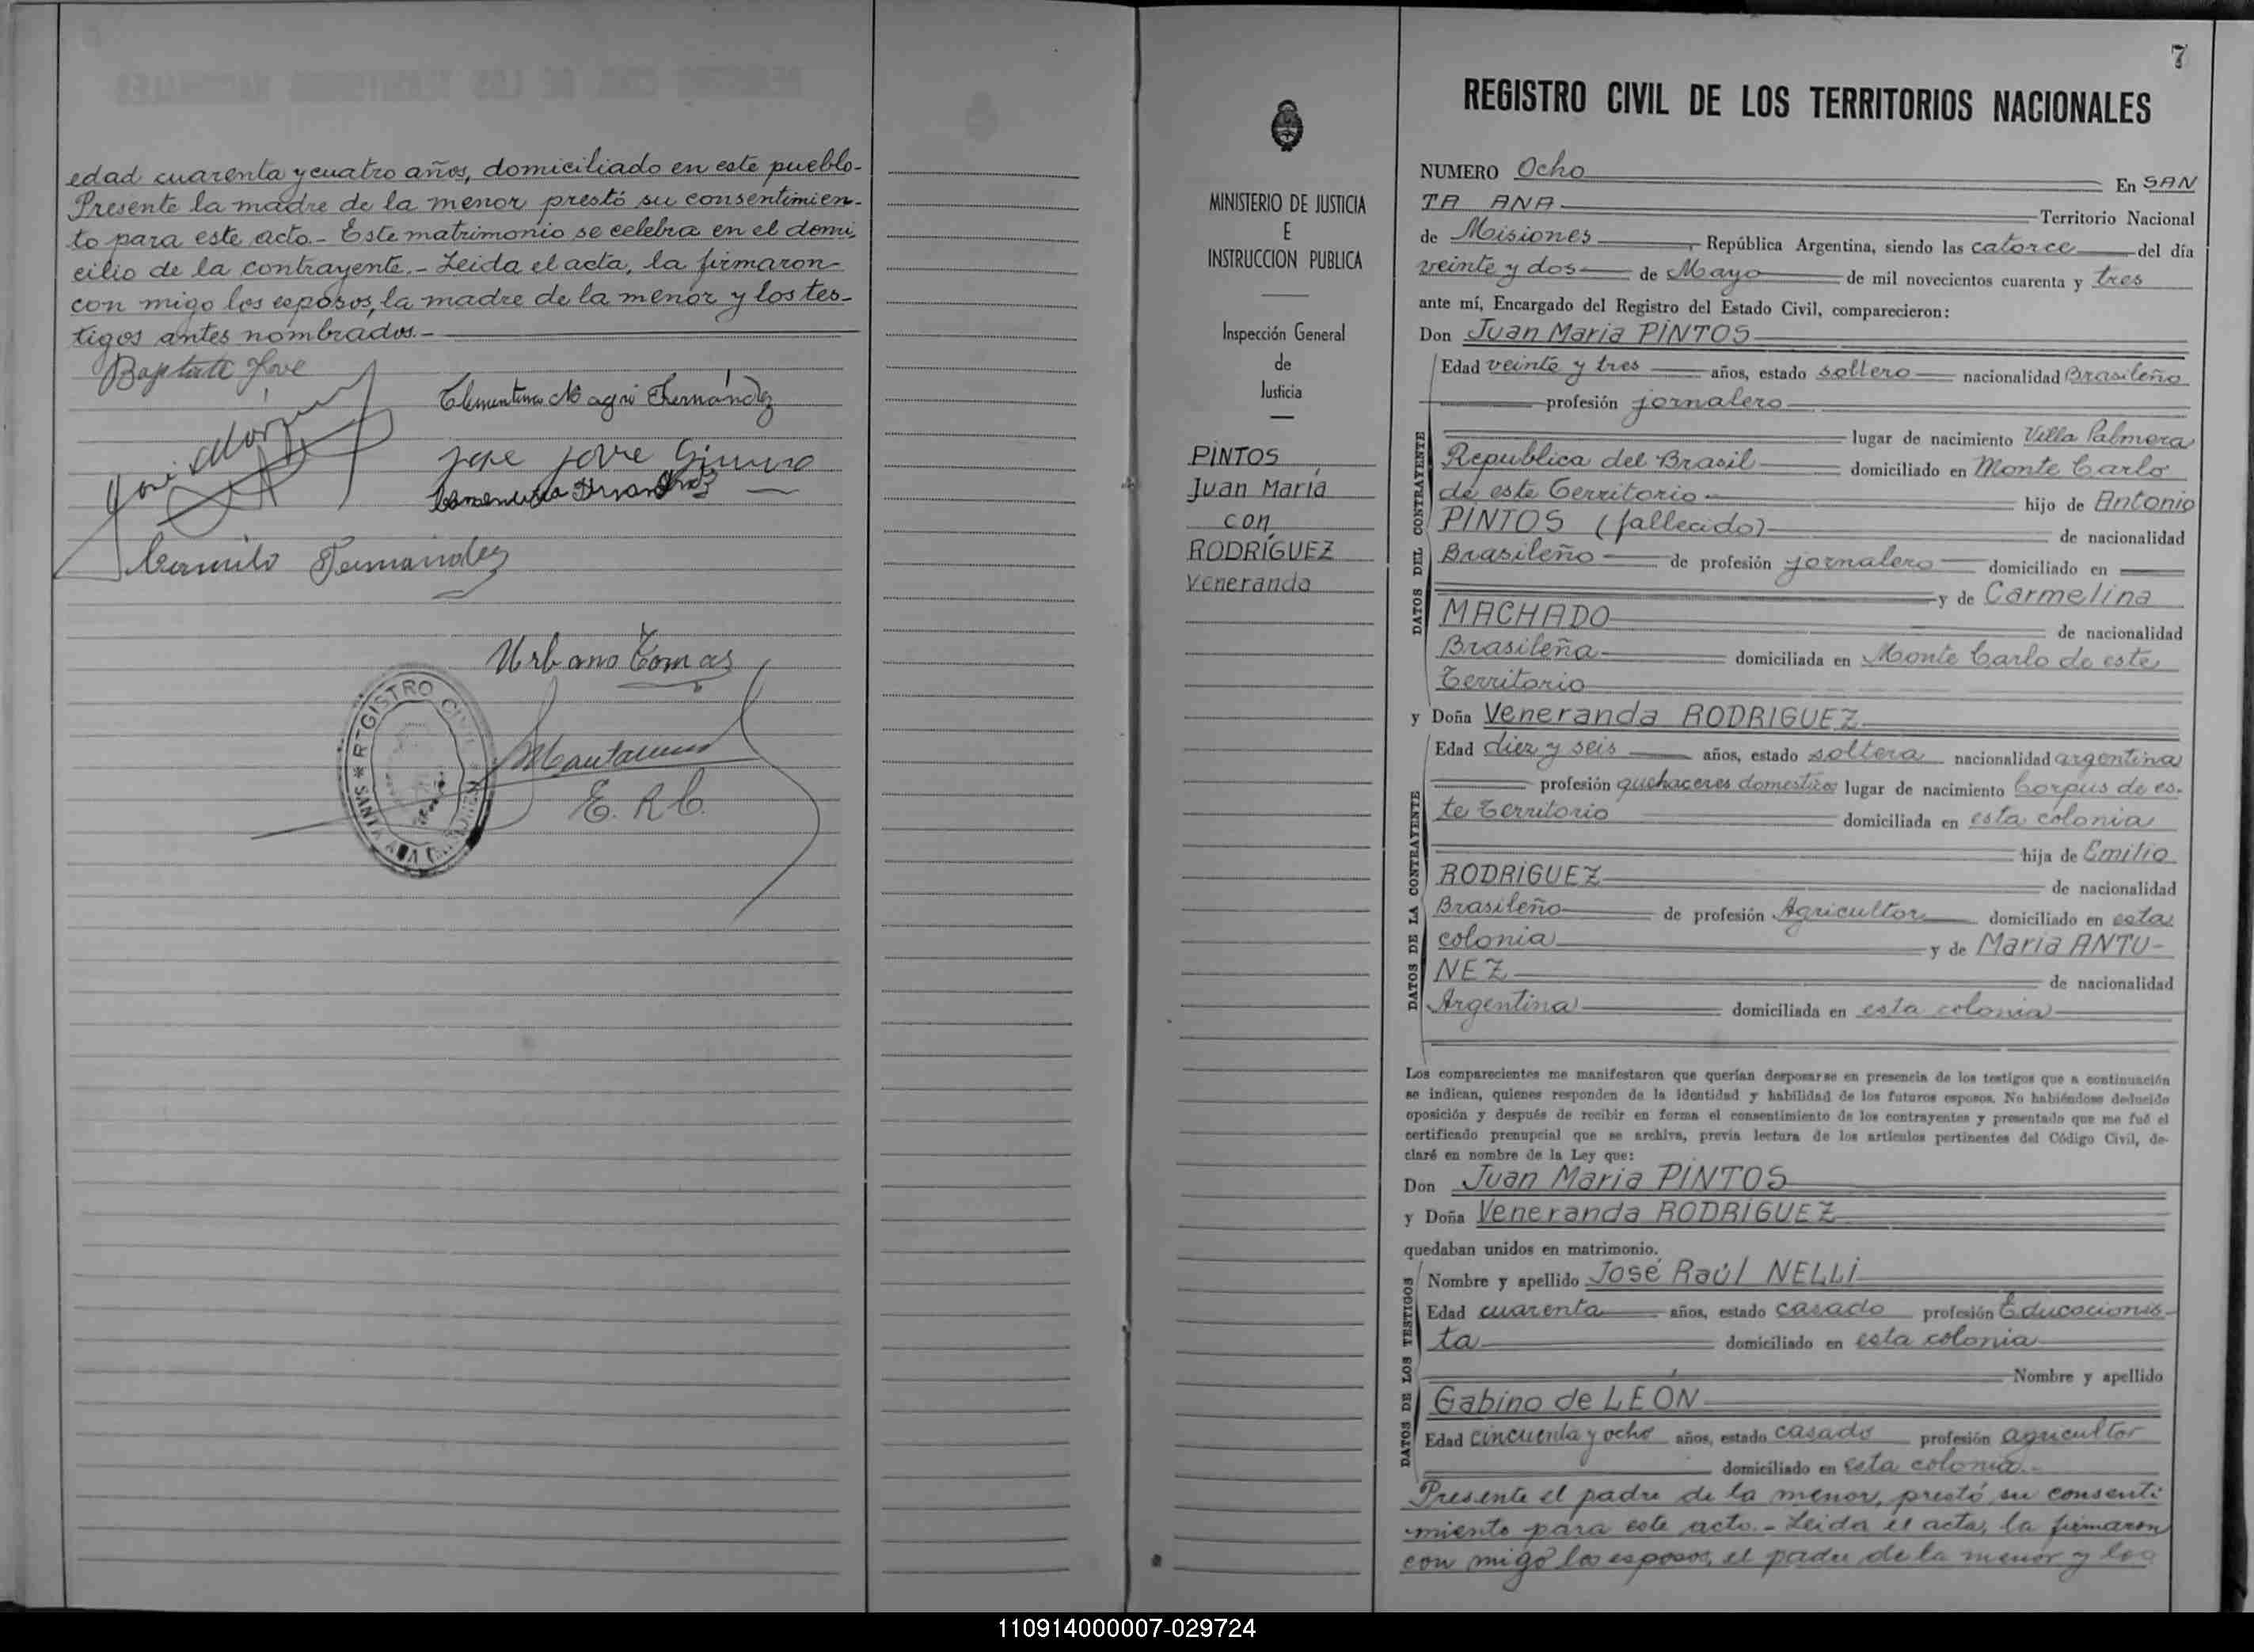 edad cuarenta y cuatro años, domiciliado en este pueblo-
Presente la madre de la menor prestó su consentimien-
to para este acto.- Este matrimonio se celebra en el domi-
cilio de la contrayente.- Leida el acta, la firmaron
con migo los esposos, la madre de la menor y los tes-
tigos antes nombrados.-
Jove
José
Fernández
Urbano Comas
E. R. C.
REGISTRO CIVIL
SANTA ANA
MINISTERIO DE JUSTICIA
E
INSTRUCCION PUBLICA
Inspección General
de
Justicia
PINTOS
Juan María
con
RODRÍGUEZ
Veneranda
7
REGISTRO CIVIL DE LOS TERRITORIOS NACIONALES
NUMERO Ocho En SAN
TA ANA Territorio Nacional
de Misiones, República Argentina, siendo las catorce del día
veinte y dos de Mayo de mil novecientos cuarenta y tres
ante mí, Encargado del Registro del Estado Civil, comparecieron:
Don Juan Maria PINTOS
DATOS DEL CONTRAYENTE
Edad veinte y tres años, estado soltero nacionalidad Brasileño
profesión jornalero
lugar de nacimiento Villa Palmera
Republica del Brasil domiciliado en Monte Carlo
de este Territorio hijo de Antonio
PINTOS (fallecido) de nacionalidad
Brasileño de profesión jornalero domiciliado en
y de Carmelina
MACHADO de nacionalidad
Brasileña domiciliada en Monte Carlo de este
Territorio
y Doña Veneranda RODRIGUEZ
DATOS DE LA CONTRAYENTE
Edad diez y seis años, estado soltera nacionalidad argentina
profesión quehaceres domesticos lugar de nacimiento Corpus de es-
te Territorio domiciliada en esta colonia
hija de Emilio
RODRIGUEZ de nacionalidad
Brasileño de profesión Agricultor domiciliado en esta
colonia y de Maria ANTU-
NEZ de nacionalidad
Argentina domiciliada en esta colonia
Los comparecientes me manifestaron que querían desposarse en presencia de los testigos que a continuación
se indican, quienes responden de la identidad y habilidad de los futuros esposos. No habiéndose deducido
oposición y después de recibir en forma el consentimiento de los contrayentes y presentado que me fué el
certificado prenupcial que se archiva, previa lectura de los artículos pertinentes del Código Civil, de-
claré en nombre de la Ley que:
Don Juan Maria PINTOS
y Doña Veneranda RODRIGUEZ
quedaban unidos en matrimonio.
DATOS DE LOS TESTIGOS
Nombre y apellido José Raúl NELLI
Edad cuarenta años, estado casado profesión Educacionis-
ta domiciliado en esta colonia
Nombre y apellido
Gabino de LEÓN
Edad cincuenta y ocho años, estado casado profesión agricultor
domiciliado en esta colonia.-
Presente el padre de la menor, prestó su consenti-
miento para este acto.- Leida el acta, la firmaron
con migo los esposos, el padre de la menor y los
110914000007-029724